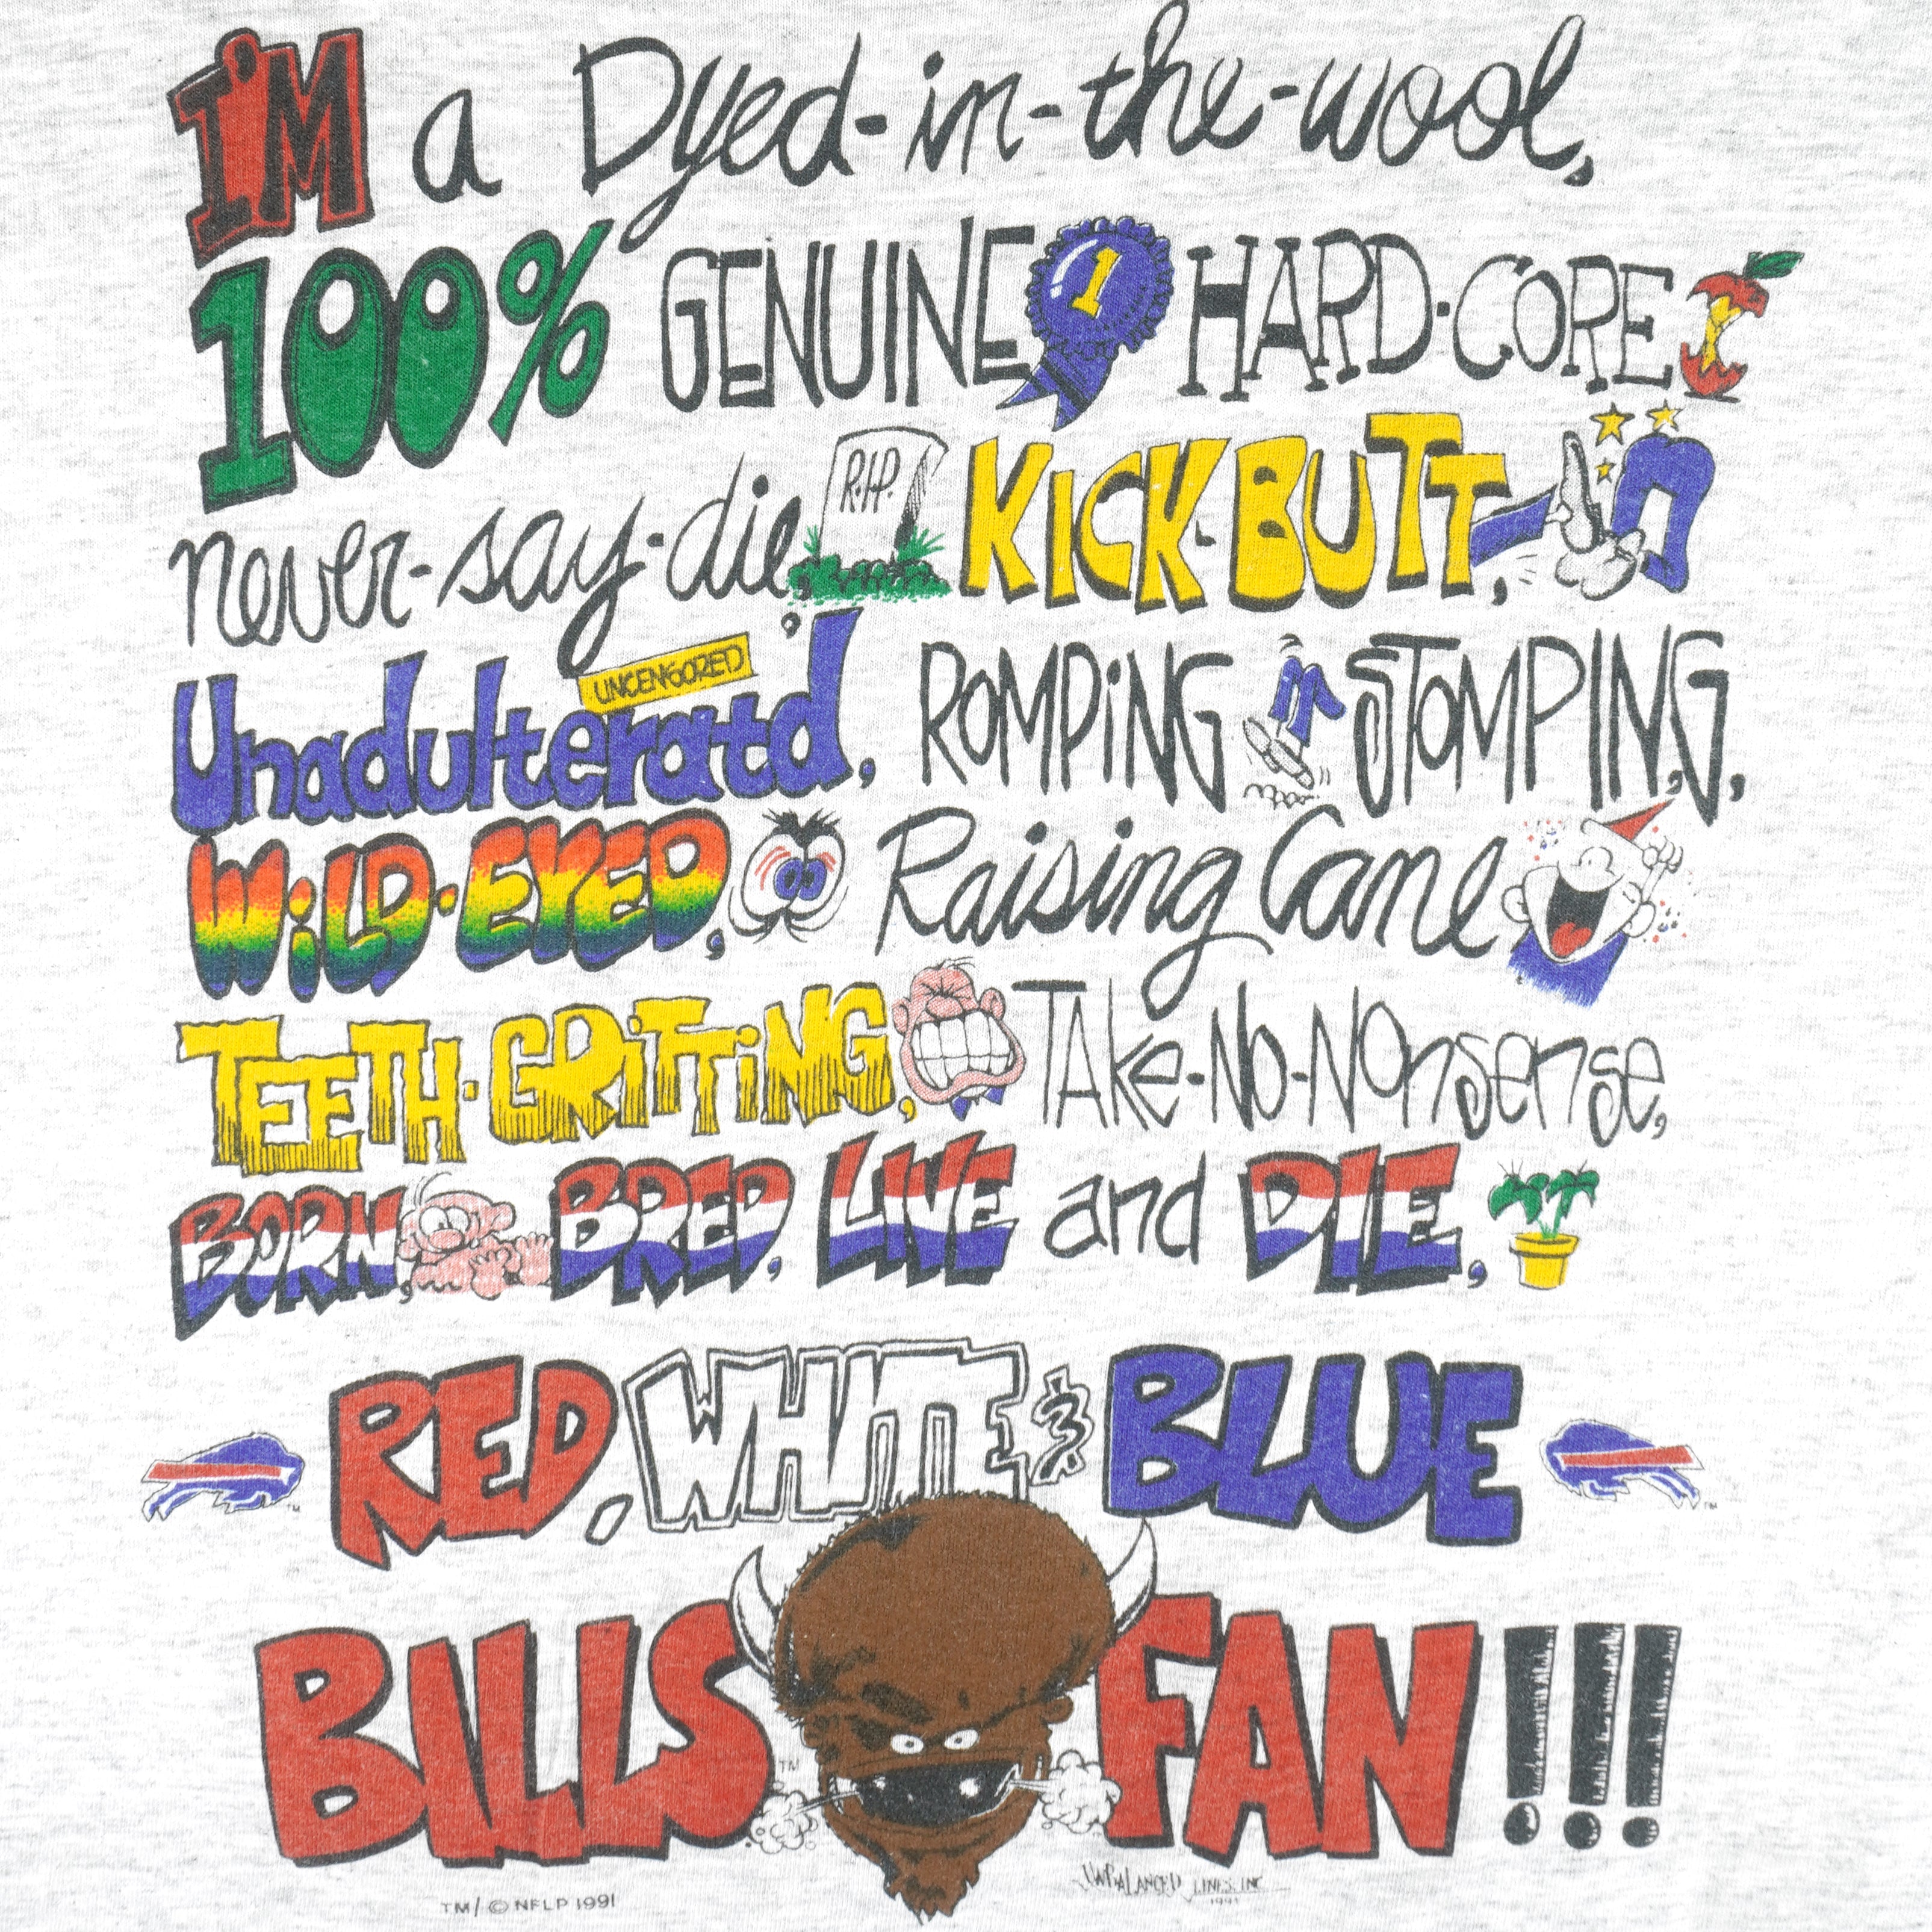 I'M a Dyed-in-the-wool,
100% GENUINE 1 HARD-CORE
never-say-die, R.I.P. KICK-BUTT,
UNCENSORED
Unadulteratd, ROMPiNG STOMPING,
WiLD-EYED, Raising Cane
TEETH-GRiTTiNG, TAke-No-Nonsense,
BORN, BRED, LIVE and DIE,
RED, WHITE & BLUE
TM TM
BILLS FAN!!!
TM
UNBALANCED LINES, INC
1991
TM/©NFLP 1991